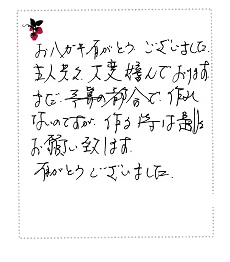 お八ガキ有がとうございました。
主人共々、大変喜んでおります。
まだ、予算の都合で、作れ
ないのですが、作る時は是非
お願い致します。
有がとうございました。